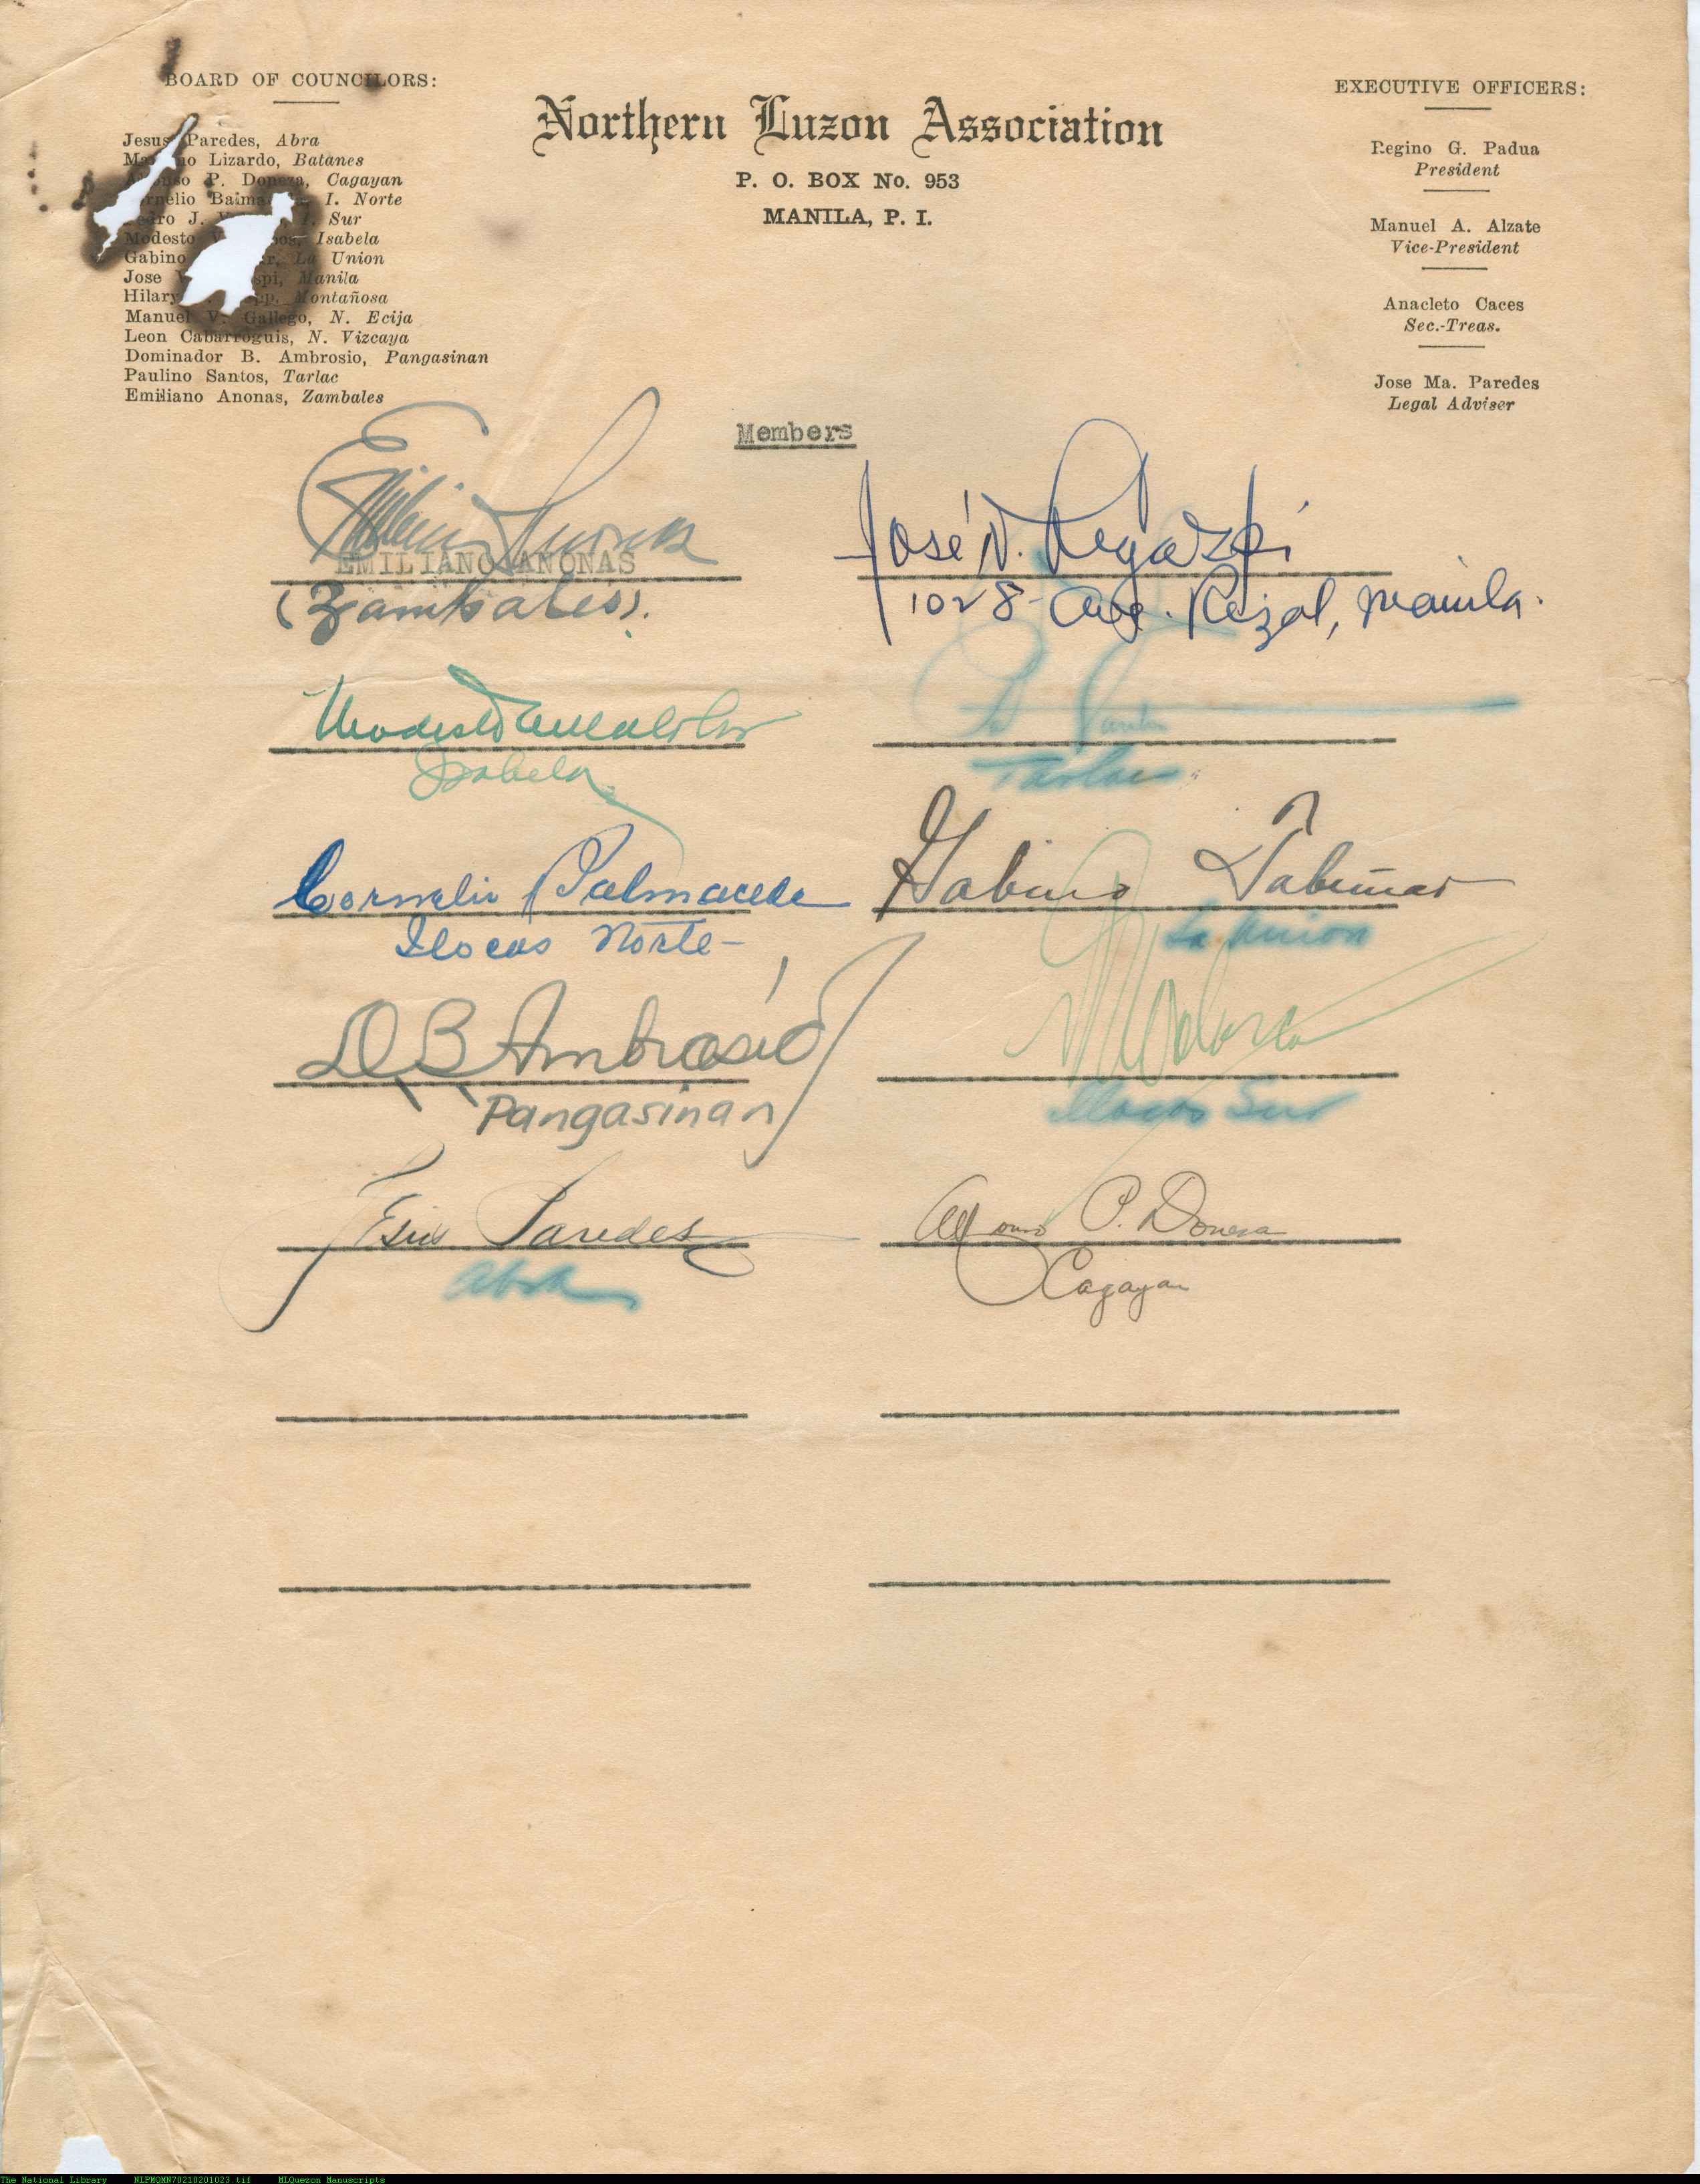 BOARD OF COUNCILORS:
Jesus Paredes, Abra
Lizardo, Batanes
P. Doneza, Cagayan
I. Norte
J. I. Sur
Modesto Isabela
Gabino La Union
Jose Manila
Hilary Montañosa
Manuel V. Gallego, N. Ecija
Leon Cabarroguis, N. Vizcaya
Dominador B. Ambrosio, Pangasinan
Paulino Santos, Tarlac
Emiliano Anonas, Zambales
Northern Luzon Association
P. O. BOX No. 953
MANILA, P. I.
EXECUTIVE OFFICERS:
Regino G. Padua
President
Manuel A. Alzate
Vice-President
Anacleto Caces
Sec.-Treas.
Jose Ma. Paredes
Legal Adviser
Members
Emiliano Anonas
EMILIANO ANONAS
(Zambales).
José N. Legazpi
1028 Ave. Rizal, Manila.
Modesto
Isabela
P. Santos
Tarlac
Cornelio Balmaceda
Ilocos Norte
Gabino Tabuñar
La Union
D. B. Ambrosio
Pangasinan
Ilocos Sur
Jesus Paredes
Abra
Alfonso P. Doneza
Cagayan
The National Library NLPMQMN70210201023.tif MLQuezon Manuscripts